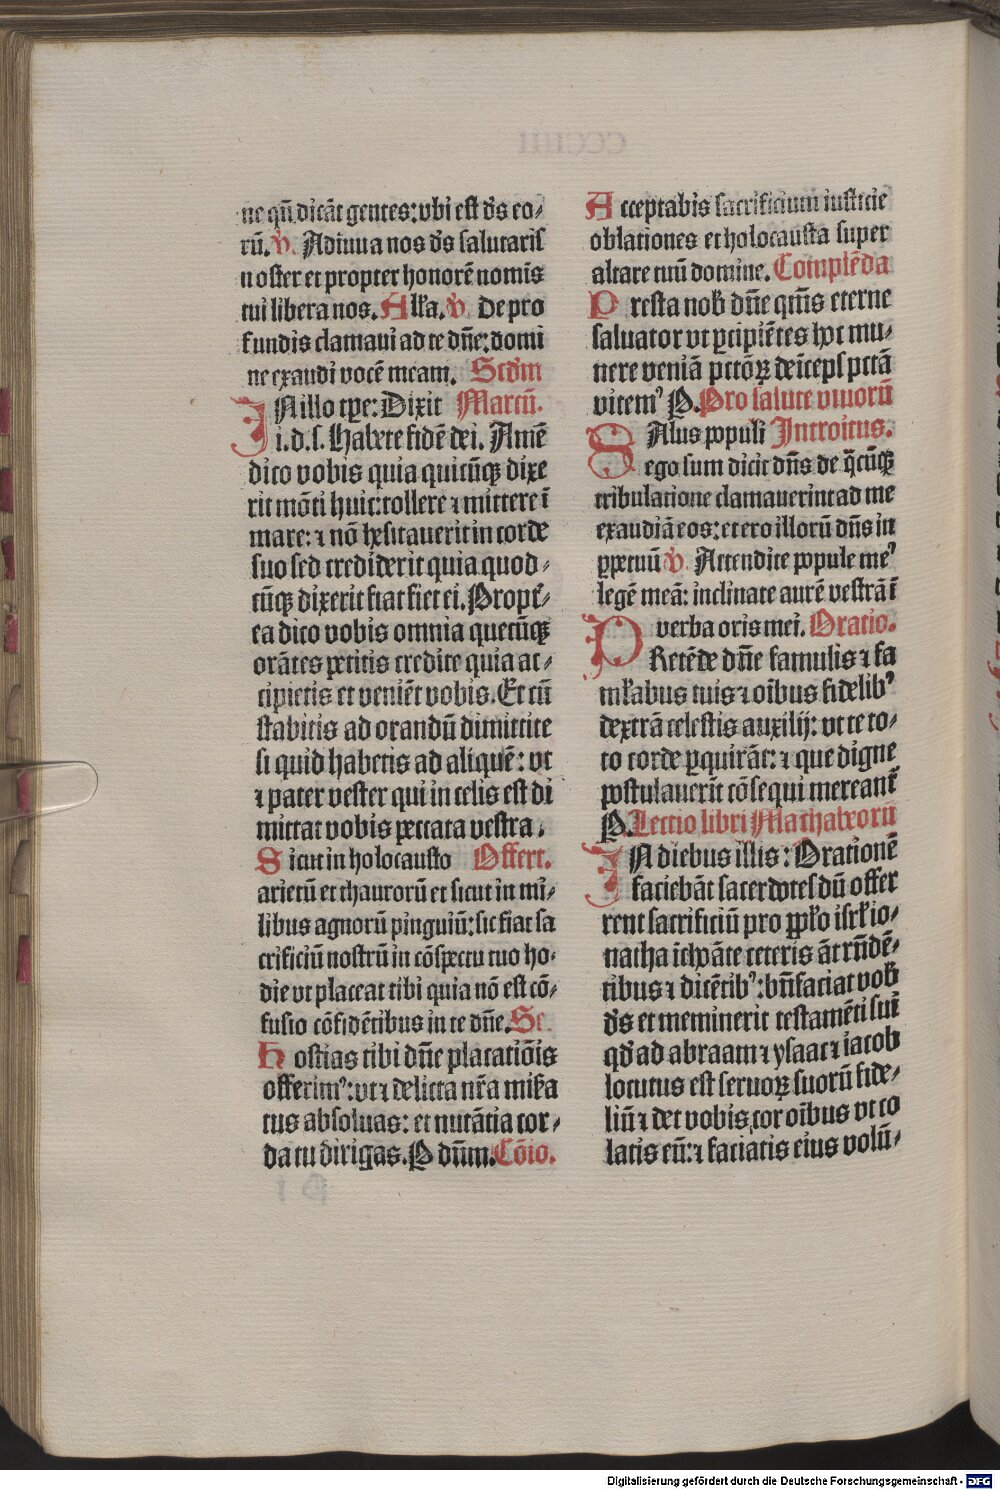 ne qñ dicãt gentes: vbi est d̃s eo/
rũ. V̓. Adiuua nos d̃s salutaris
noster et propter honorẽ nominis
tui libera nos. Alła. V̓. De pro
fundis clamaui ad te dñe: domi
ne exaudi vocẽ meam. Scd̓m
IN illo tp̃e: Dixit Marcũ.
i. d. s. Habete fidẽ dei. Amẽ
dico vobis quia quicũqꝫ dixe
rit mõti huic: tollere ⁊ mittere ĩ
mare: ⁊ nõ hesitauerit in corde
suo sed crediderit quia quod-
cũqꝫ dixerit fiat fiet ei. Propt̃-
ea dico vobis omnia quecũqꝫ
orãtes petitis credite quia ac-
cipietis et veniẽt vobis. Et cũ
stabitis ad orandũ dimittite
si quid habetis ad aliquẽ: vt
⁊ pater vester qui in celis est di
mittat vobis peccata vestra.
Sicut in holocausto Offert.
arietũ et thaurorũ et sicut in mi-
libus agnorũ pinguiũ: sic fiat sa
crificiũ nostrũ in cõspectu tuo ho-
die vt placeat tibi quia nõ est cõ-
fusio cõfidẽtibus in te dñe. Se.
Hostias tibi dñe placatiõis
offerim⁹: vt ⁊ delicta nr̃a mis̃a
tus absoluas: et nutãtia cor-
da tu dirigas. P dñm. Cõio.
Acceptabis sacrificium iusticie
oblationes et holocausta super
altare tuũ domine. Complẽda
Presta nob̃ dñe qm̃s eterne
saluator vt ꝑcipiẽtes hoc mu-
nere veniã pctõꝝ deĩceps pctã
vitem⁹ P. Pro salute viuorũ
SAlus populi Introitus.
ego sum dicit dñs de q̃cũqꝫ
tribulatione clamauerint ad me
exaudiã eos: et ero illorũ dñs in
ꝑpetuũ V̓. Attendite popule me⁹
legẽ meã: inclinate aurẽ vestrã ĩ
verba oris mei. Oratio.
PRetẽde dñe famulis ⁊ fa
młabus tuis ⁊ oĩbus fidelib⁹
dextrã celestis auxilij: vt te to-
to corde ꝑquirãt: ⁊ que digne
postulauerĩt cõsequi mereant̃
P. Lectio libri Machabeorũ
IN diebus illis: Orationẽ
faciebãt sacerdotes dũ offer
rent sacrificiũ pro pp̃ło isrł io/
natha ichoãte ceteris ãt rñdẽ-
tibus ⁊ dicẽtib⁹: bñfaciat vob̃
d̃s et meminerit testamẽti sui
qd̓ ad abraam ⁊ ysaac ⁊ iacob
locutus est seruoꝝ suorũ fide-
liũ ⁊ det vobis cor oĩbus vt co
latis eũ: ⁊ faciatis eius volũ-
Digitalisierung gefördert durch die Deutsche Forschungsgemeinschaft - DFG